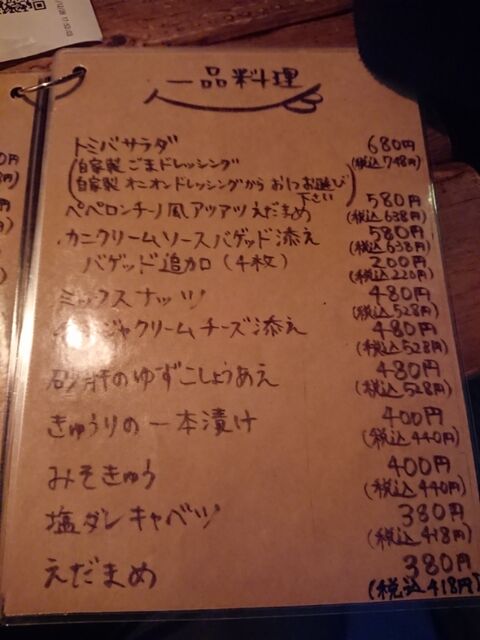 一品料理
トミバサラダ 680円
(自家製 ごまドレッシング (税込748円)
自家製 オニオンドレッシングから お1つお選び
下さい)
ペペロンチーノ風アツアツえだまめ 580円
(税込638円)
カニクリームソースバゲッド添え 580円
(税込638円)
バゲッド追加(4枚) 200円
(税込220円)
ミックスナッツ 480円
(税込528円)
ジャクリームチーズ添え 480円
(税込528円)
砂肝のゆずこしょうあえ 480円
(税込528円)
きゅうりの一本漬け 400円
(税込440円)
みそきゅう 400円
(税込440円)
塩ダレキャベツ 380円
(税込418円)
えだまめ 380円
(税込418円)